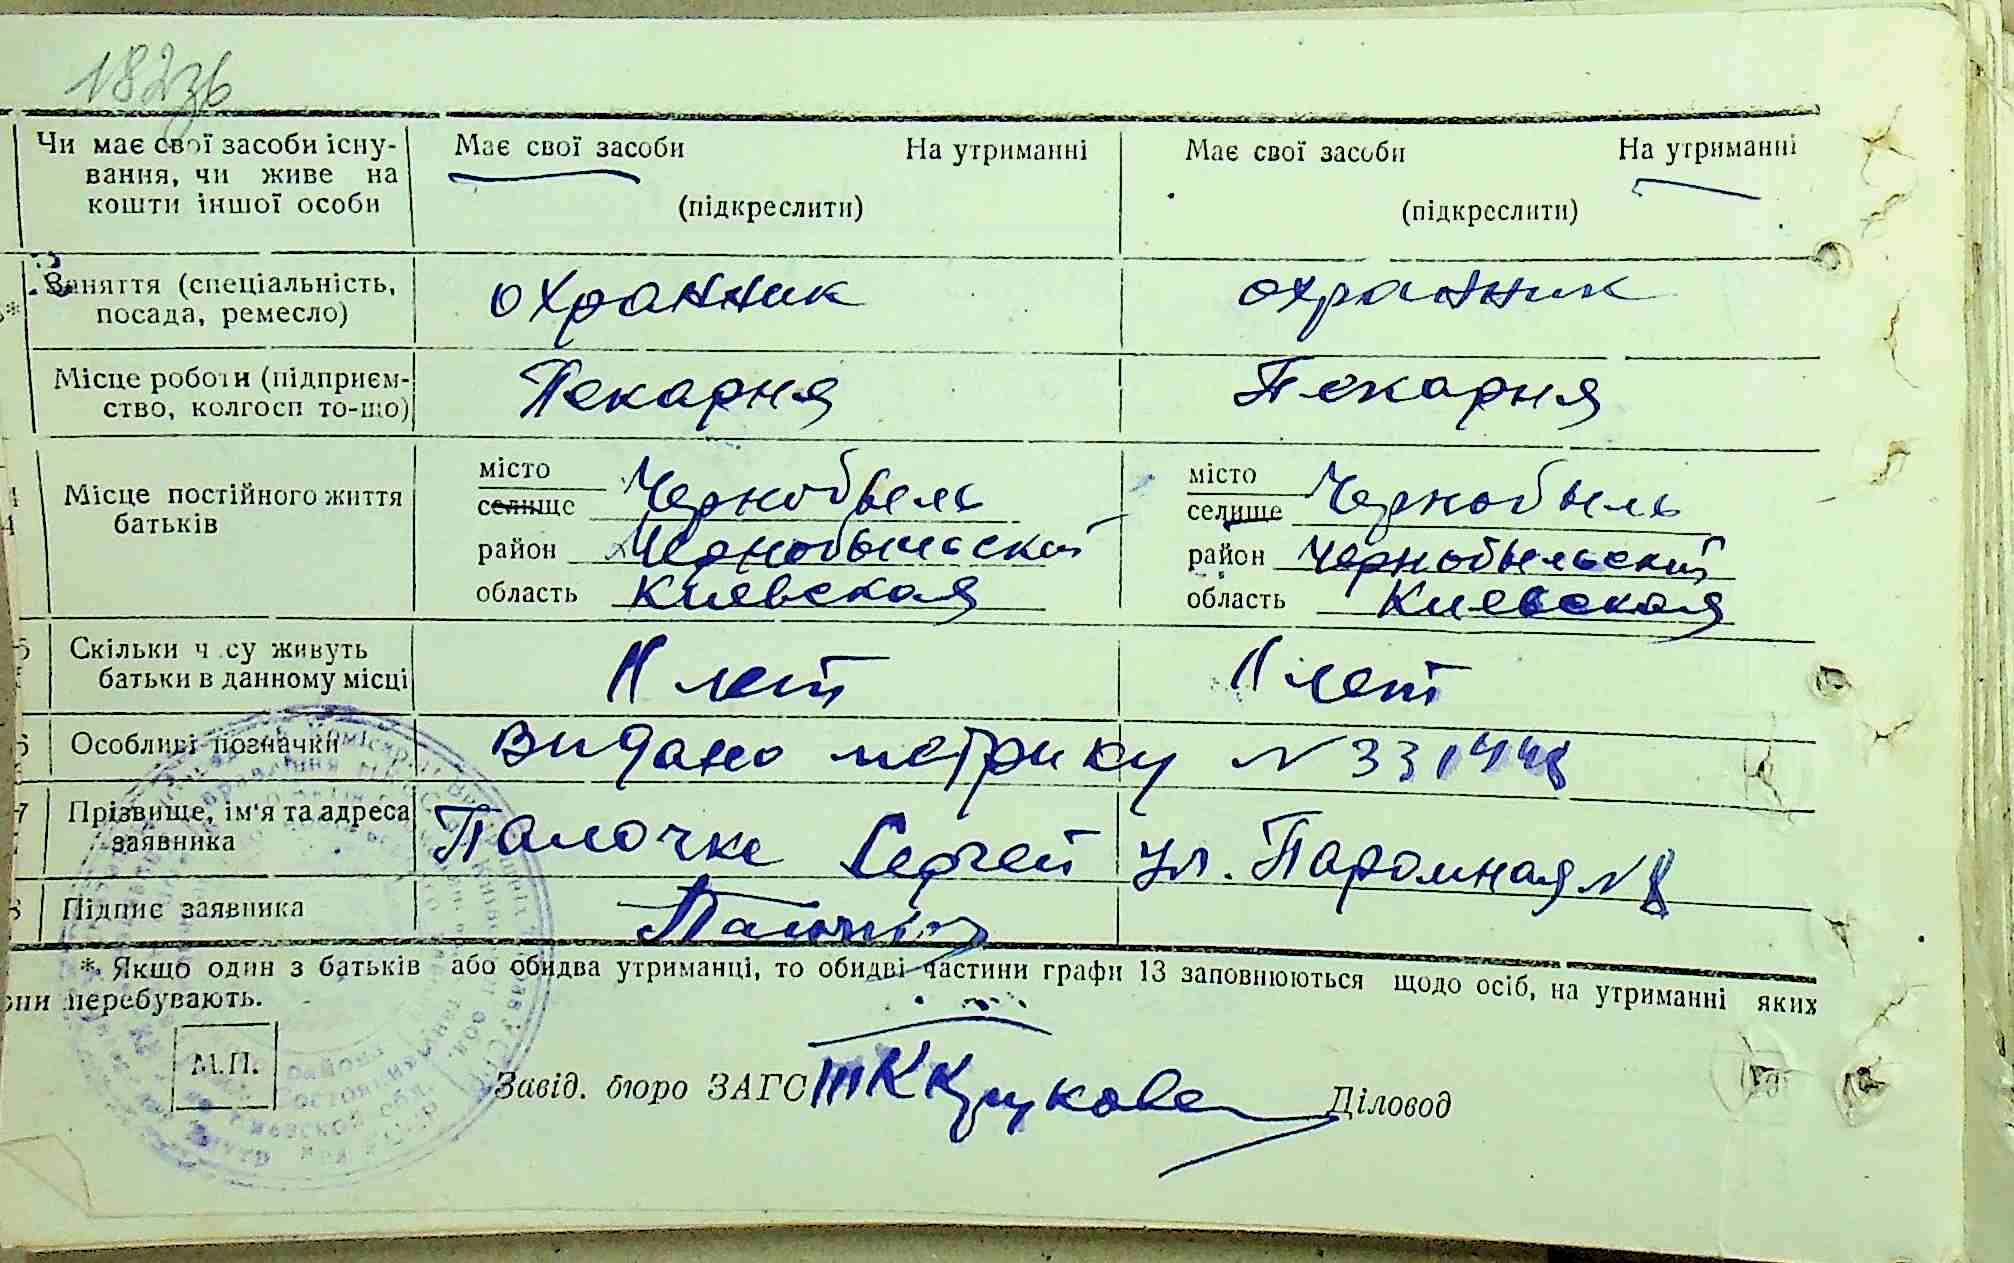 182зв
Чи має свої засоби існу-
вання, чи живе на
кошти іншої особи
Має свої засоби На утриманні
(підкреслити)
Має свої засоби На утриманні
(підкреслити)
Заняття (спеціальність,
посада, ремесло)
охранник
охранник
Місце роботи (підприєм-
ство, колгосп то-що)
Пекарня
Пекарня
Місце постійного життя
батьків
місто
селище Чернобыль
район Чернобыльский
область Киевская
місто
селище Чернобыль
район Чернобыльский
область Киевская
Скільки ч су живуть
батьки в данному місці
11 лет
11 лет
Особливі позначки
Видано метрику N 331448
Прізвище, ім'я та адреса
заявника
Палочке Сергей ул. Паромная N 8
Підпис заявника
* Якщо один з батьків або обидва утриманці, то обидві частини графи 13 заповнюються щодо осіб, на утриманні яких
они перебувають.
М.П.
Завід. бюро ЗАГС
Діловод